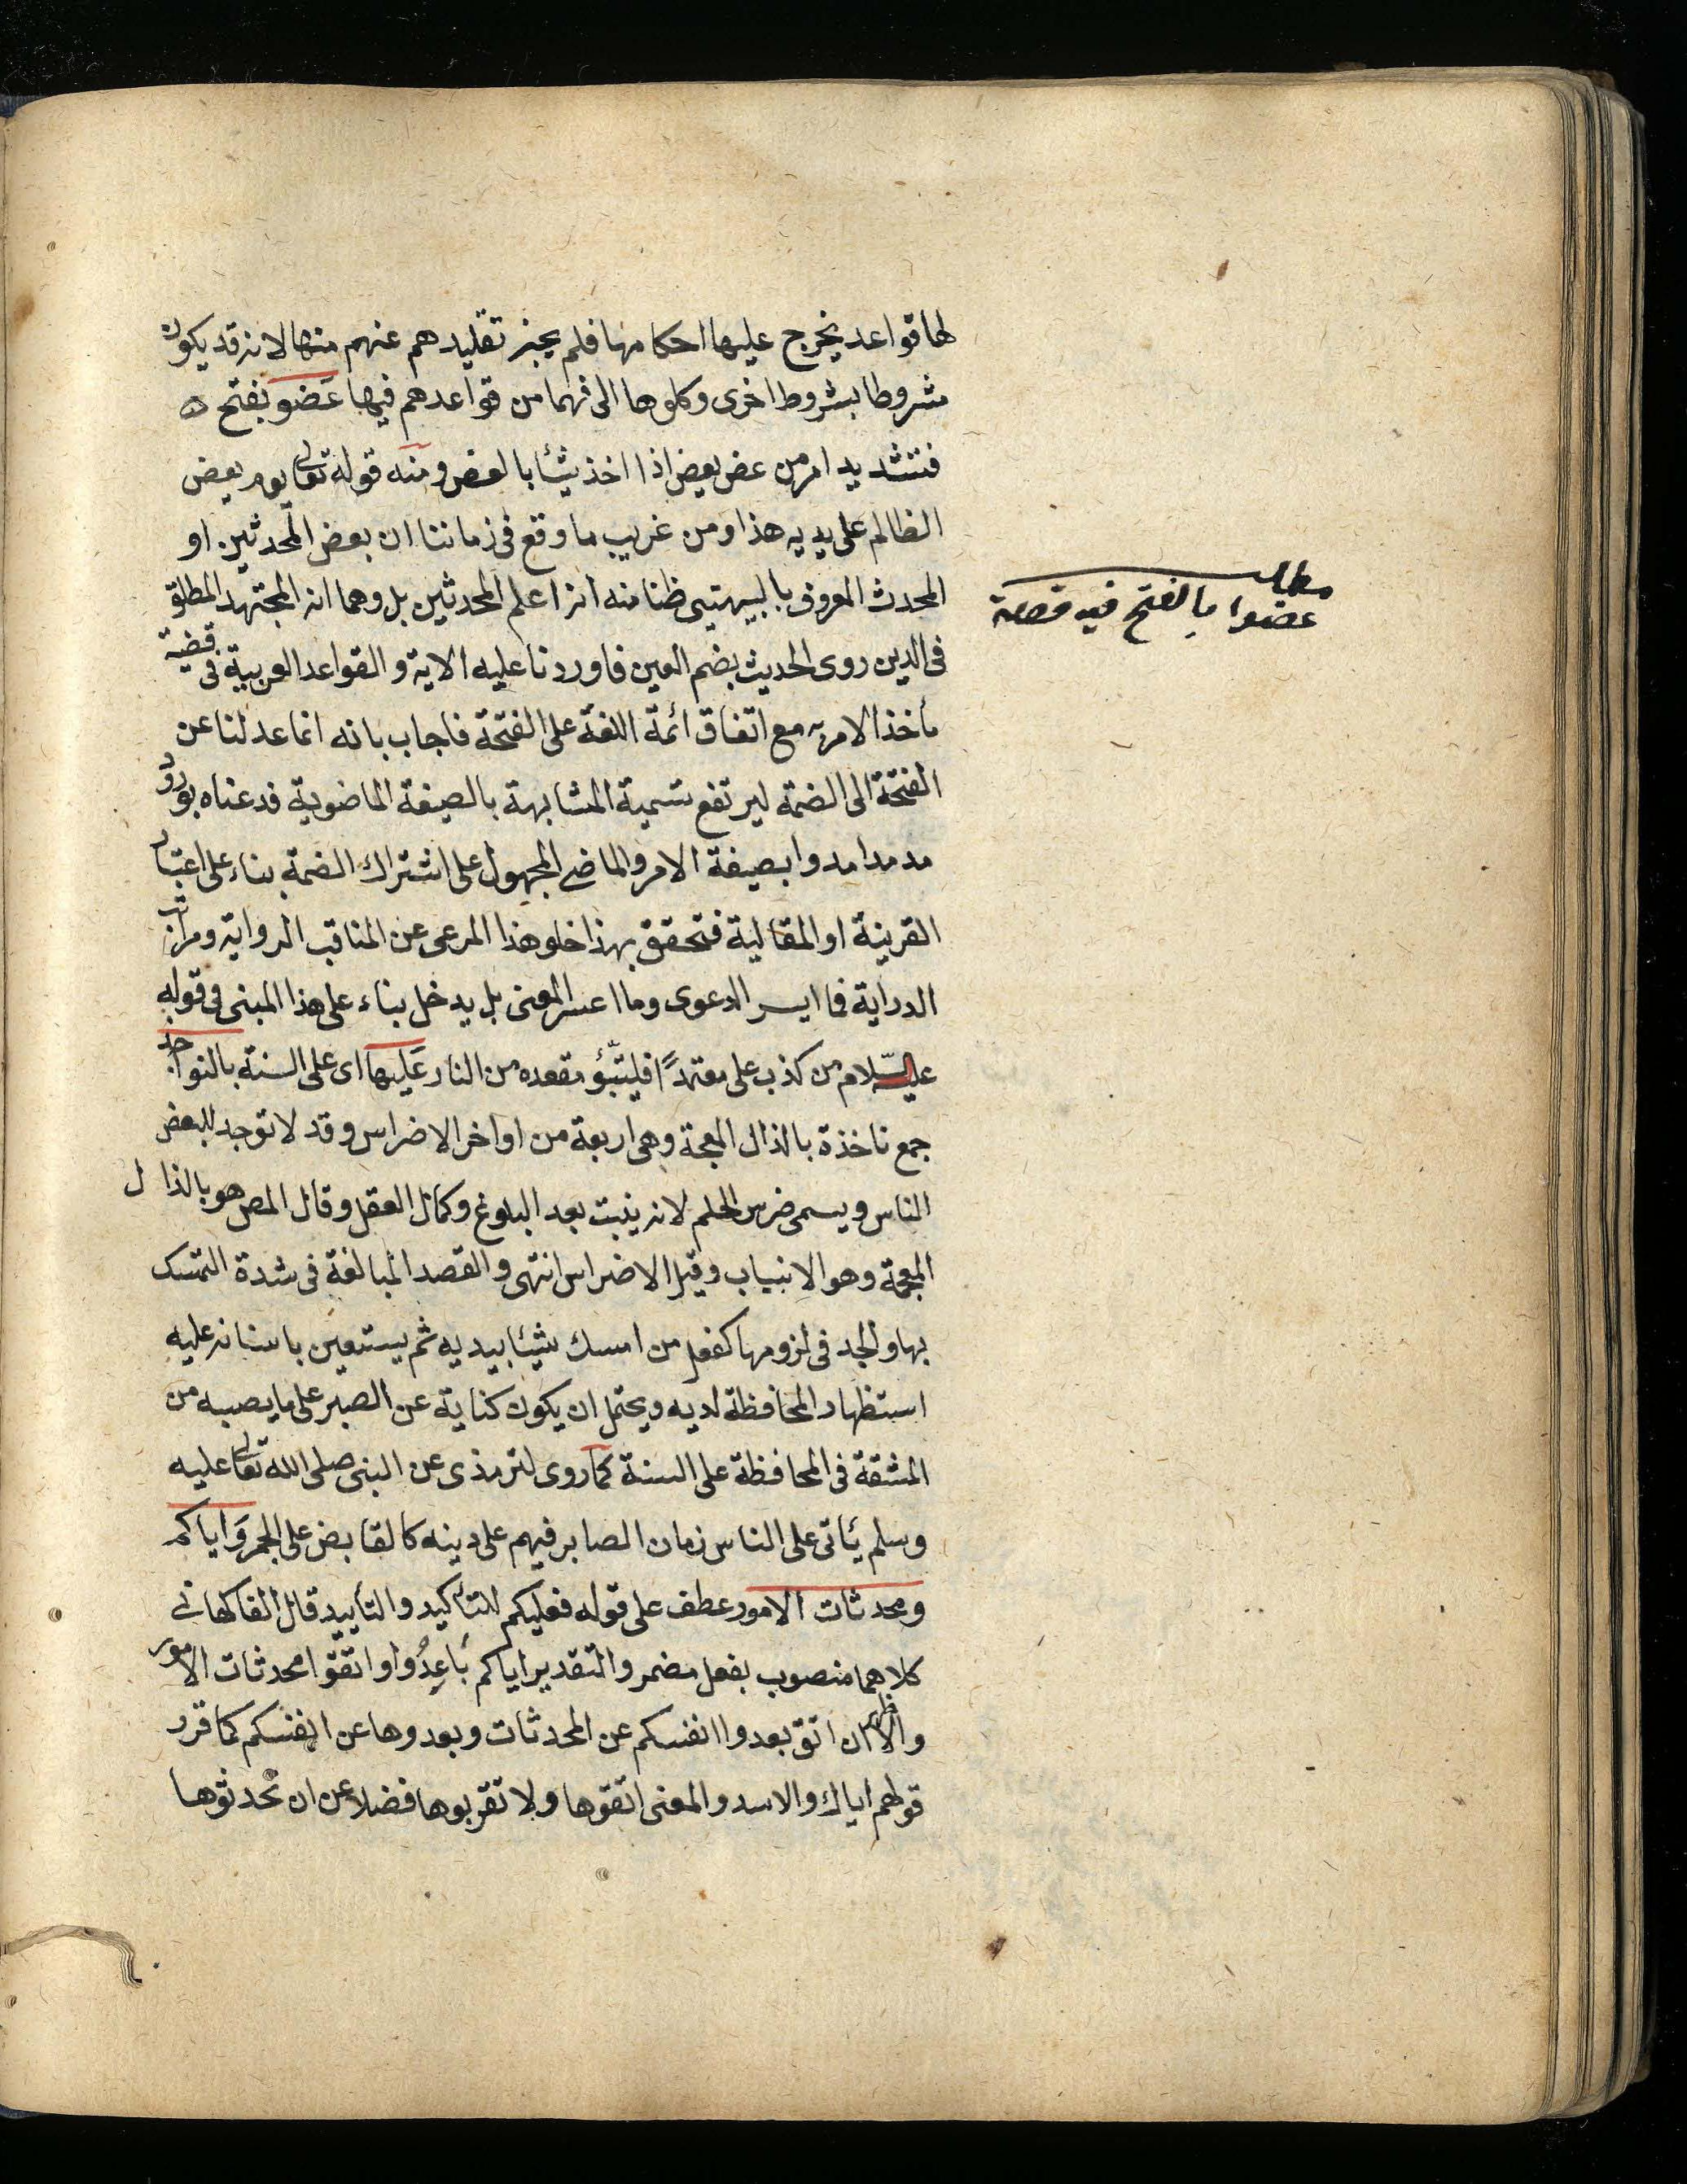 لها قواعد يخرج عليها احكامها فلم يجز تقليدهم عنهم منها لانه قد يكون
مشروطا بشروط اخرى وكلوها الى فهما من قواعدهم فيها عَضو بفتح ه
فتشديد امر من عض يعض اذا اخذ شيئا بالعض ومنه قوله تعالى يوم يعض
الظالم على يديه هذا ومن غريب ما وقع في زماننا ان بعض المحدثين او
المحدث المعروف بالبيهتيى ظنا منه انه اعلم المحدثين بل وهما انه المجتهد المطلق
مطلب
عضوا بالفتح فيه قصة
في الدين روى الحديث بضم العين فاوردنا عليه الاية والقواعد العربية في قضية
مأخذ الامرية مع اتفاق ائمة اللغة على الفتحة فاجاب بانه انما عدلنا عن
الفتحة الى الضمة ليرتفع تسمية المشابهة بالصيغة الماضوية فدعناه بورود
مد مدا مدوا بصيغة الامر والماضي المجهول على اشتراك الضمة بناء على اعتبار
القرينة او المقالية فتحقق بهذا خلو هذا المرعى عن المناقب الرواية ومراتب
الدراية فما ايسر الدعوى وما اعسر المعنى بل يدخل بناء على هذا المبنى في قوله
عليه السّلام من كذب على متعمدًا فليتبّؤ مقعده من النار عَليها اى على السنة بالنواجد
جمع ناخذة بالذال المعجة وهى اربعة من اواخر الاضراس وقد لا توجد لبعض
الناس ويسمى ضرس الحلم لانه ينبت بعد البلوغ وكمال العقل وقال المص هو بالذال
المعجمة وهو الانياب وقيل الاضراس انتهى والقصد المبالغة في شدة التمسك
بها والجد في لزومها كفعل من امسك شيئا بيديه ثم يستعين باسنانه عليه
استظهار المحافظة لديه ويحتمل ان يكون كناية عن الصبر على ما يصيبه من
المشقة في المحافظة على السنة كما روى لترمذى عن النبى صلى الله تعالى عليه
وسلم يأتى على الناس زمان الصابر فيهم على دينه كالقابض على الجمر وَاياكم
ومحدثات الامور عطف على قوله فعليكم للتأكيد والتأييد قال الفاكهانى
كلاهما منصوب بفعل مضمر والتقدير اياكم بَاعِدُوا واتقوا محدثات الامور
والاظهر ان اتق بعدوا انفسكم عن المحدثات وبعدوها عن انفسكم كما قرر
قولهم اياك والاسد والمعنى اتقوها ولا تقربوها فضلا عن ان تحدثوها